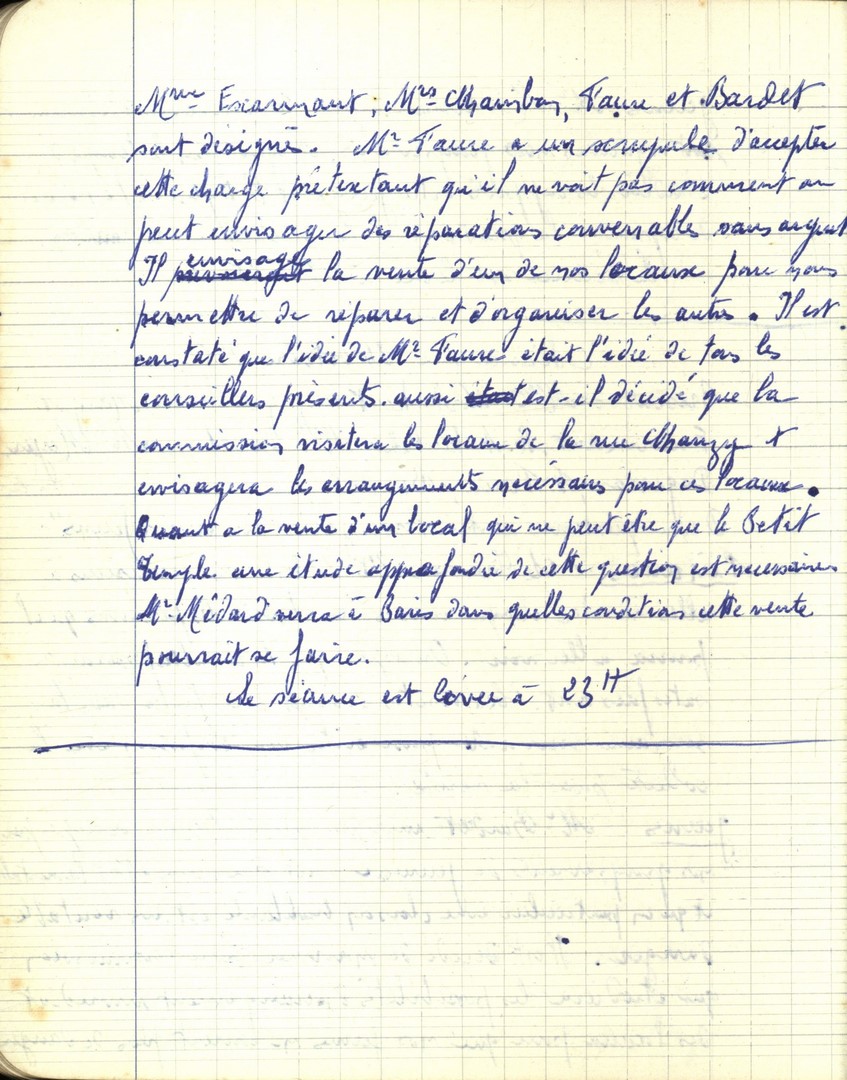 Mme Escarmant, Mrs Chambon, Faure et Bardet
sont désignés. Mr Faure a un scrupule d'accepter
cette charge prétextant qu'il ne voit pas comment on
peut envisager des réparations convenables sans argent
Il envisage la vente d'un de nos locaux pour nous
permettre de réparer et d'organiser les autres. Il est
constaté que l'idée de Mr Faure était l'idée de tous les
conseillers présents. aussi était est-il décidé que la
commission visitera les locaux de la rue Chanzy et
envisagera les arrangements nécessaires pour ces locaux.
Quant a la vente d'un local qui ne peut être que le Petit
Temple une étude approfondie de cette question est necessaire
Mr Médard verra à Paris dans quelles conditions cette vente
pourrait se faire.
La séance est levée à 23H